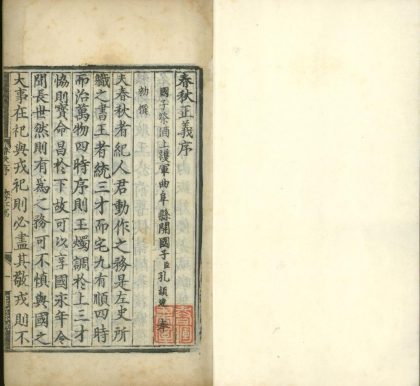 春秋正義序
國子祭酒上護軍曲阜縣開國子臣孔穎達奉
勑撰
夫春秋者紀人君動作之務是左史所
職之書王者統三才而宅九有順四時
而治萬物四時序則玉燭調於上三才
協則寳命昌於下故可以享國永年令
聞長世然則有爲之務可不慎與國之
大事在祀與戎祀則必盡其敬戎則不